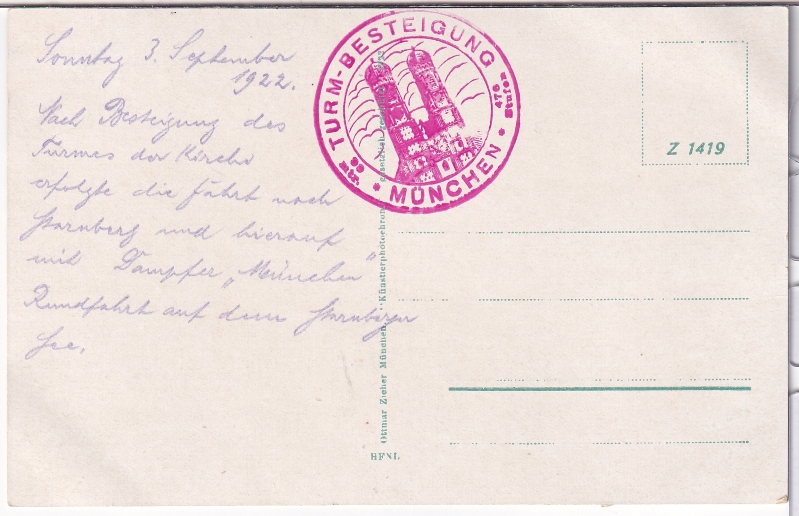 Sonntag 3. September
1922.
Nach Besteigung des
Turmes der Kirche
erfolgte die Fahrt nach
Starnberg und hierauf
mit Dampfer „München“
Rundfahrt auf dem Starnberger
See.
TURM-BESTEIGUNG
476 Stufen
99 mtr.
* MÜNCHEN *
Z 1419
Ottmar Zieher München, "Künstlerphotochrom" gesetzlich
HFNL